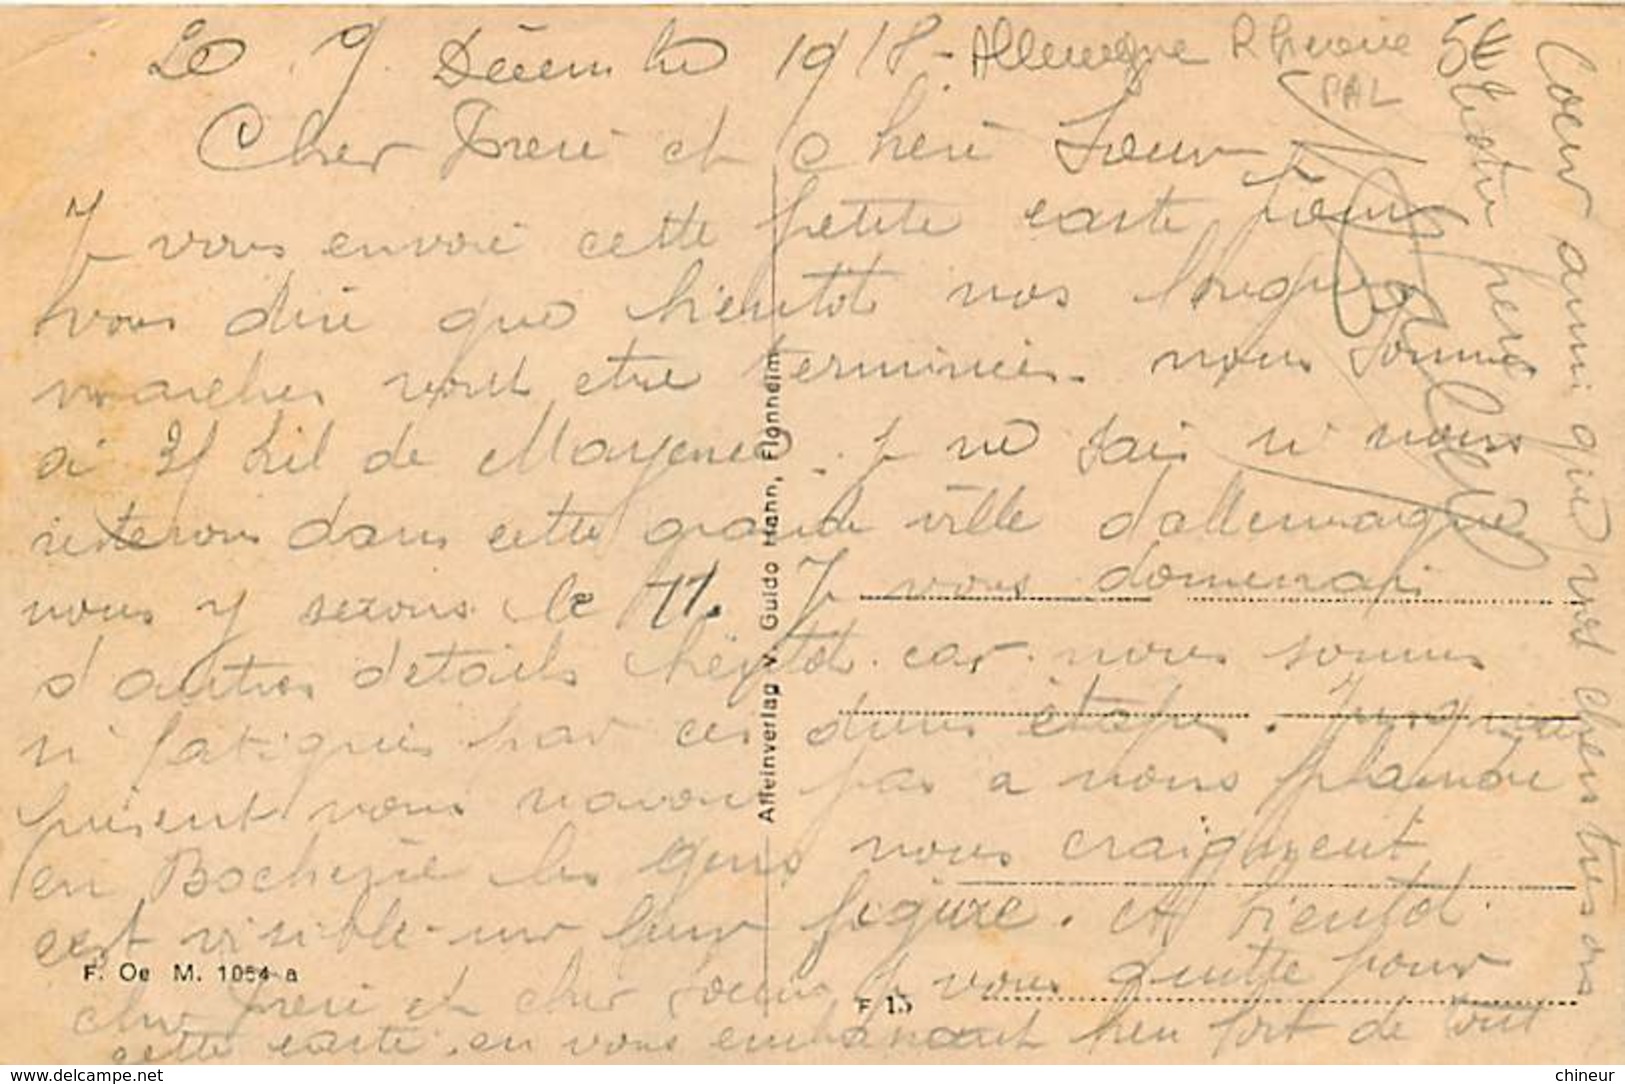 Le 9 Décembre 1918 - Allemagne Rhénanie 5€
PAL
Cher Frere et chere Soeur
Je vous envoie cette petite carte pour
vous dire que bientot nos longues
marches vont etre terminées. nous sommes
a 25 kil de Mayence. Je ne sais si nous
resterons dans cette grande ville d'allemagne
nous y serons le 11. Je vous donnerai
d'autres details bientot. car nous sommes
si fatigués par ces dures étapes. Jusqu'a
présent nous navons pas a nous plaindre
en Bocherie les gens nous craignent
cest visible sur leur figure. A bientot
cher Frere et cher Soeur Je vous quitte pour
cette carte. en vous embrassant bien fort de tout
Coeur ainsi que vos chers tresors
Votre frere
Affeinverlag v. Guido Hann, Flonheim
F. Oe M. 1064 a
F 15
https://www.delcampe.net
chineur